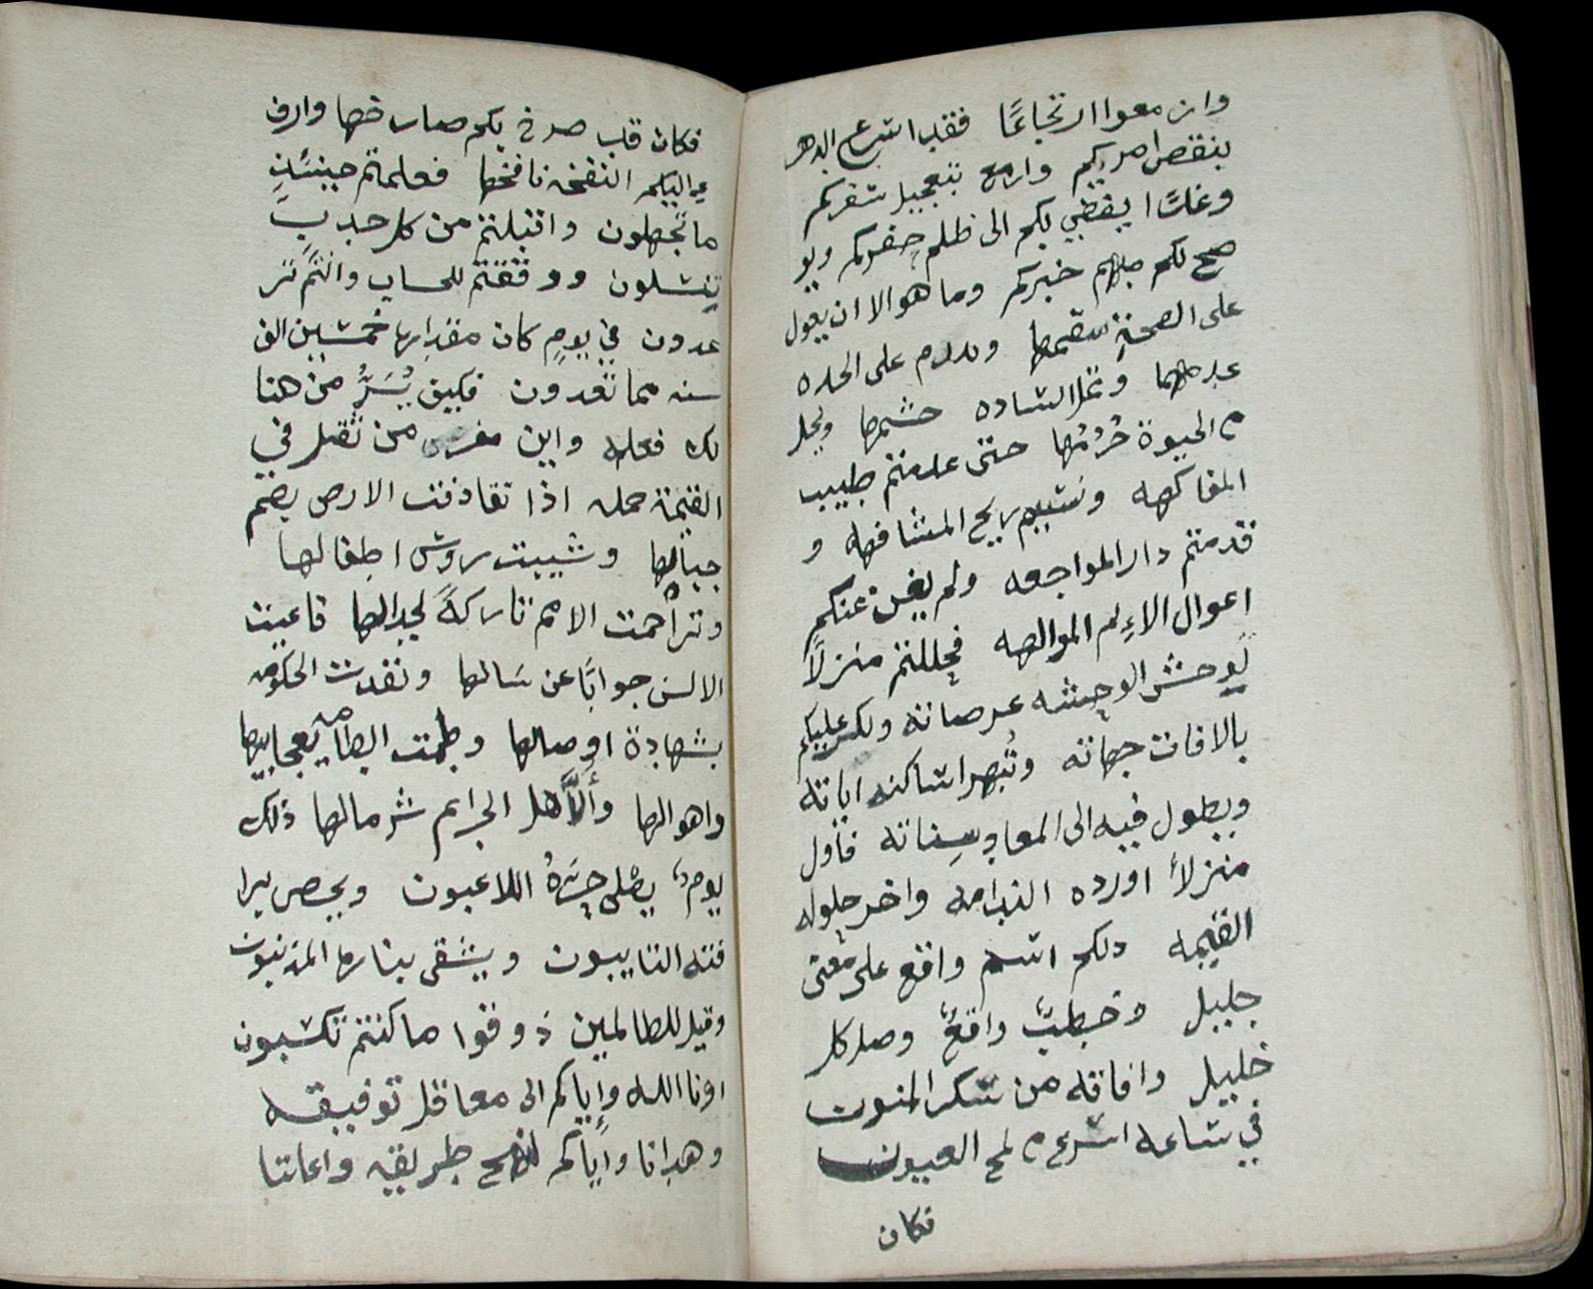 وان معوا ارتجاعًا فقد اسرع الدهر
بنقص امركم وازمع بتعجيل سفركم
وغدًا يفضي بكم الى ظلم حفركم ولو
صح لكم خبركم وما هو الا ان يعول
على الصحة سقمها على الحده
حتى عدمتم طيب
المفاكهه ونسيم ريح المشافهه و
قدمتم دار المواجهه ولم يغن عنكم
اعوال الوالهه فحللتم منزلًا
يوحش الوحشه عرصاته عليكم
بالافات جهاته وتبهر ساكنه اياته
ويطول فيه الى المعاد سناته فاول
منزلًا اورده الندامه واخر حلوله
القيمه ذلكم اسم واقع على معنى
جليل وخطبٌ واقعٌ
خليل وافاقه من سكر المنون
في ساعه اسرع من لمح العيون
فكان
فكان قد صرخ بكم صارخها وازف
اليكم النفخه نافخها فعلمتم حينئذٍ
ما تجهلون واقبلتم من كل حدبٍ
تنسلون ووقفتم للحساب وانتم تر
عدون في يومٍ كان مقدارها خمسين الف
سنه مما تعدون فكيف يُسَرُّ من هنا
لك فعله واين مفر من ثقل في
القيمة حمله اذا تقاذفت الارض بصم
جبالها وشيبت روس اطفالها
وتزاحمت الامم تاركةً لجدالها فاعيت
الالسن جوابًا عن سالها ونفدت الحكومه
بشهادة اوصالها وطمت الطامه بعجايبها
واهوالها وأل اهل الجرايم شر مالها ذلك
يوم يصلى حرّهُ اللاعبون
فته التايبون ويشقى بنارها المذنبون
وقيل للظالمين ذوقوا ما كنتم تكسبون
اونا الله وإياكم الى معاقل توفيقه
وهدانا وإياكم طريقه واعاننا